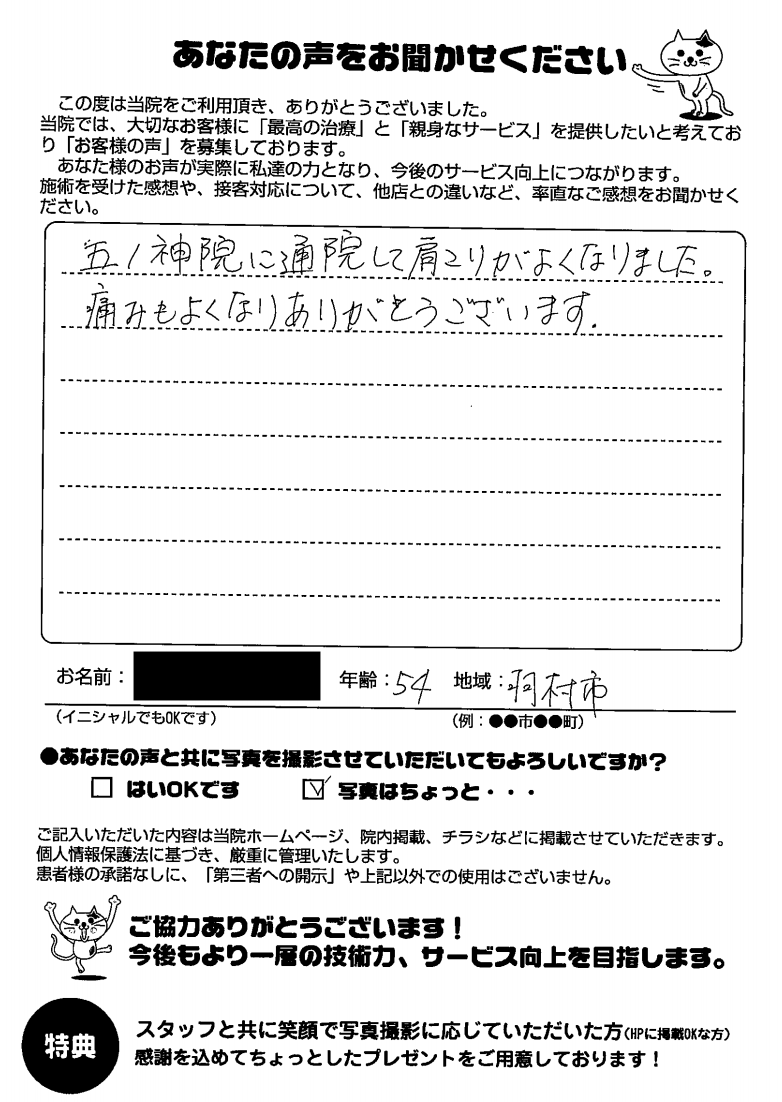 あなたの声をお聞かせください
この度は当院をご利用頂き、ありがとうございました。
当院では、大切なお客様に「最高の治療」と「親身なサービス」を提供したいと考えてお
り「お客様の声」を募集しております。
あなた様のお声が実際に私達の力となり、今後のサービス向上につながります。
施術を受けた感想や、接客対応について、他店との違いなど、率直なご感想をお聞かせく
ださい。
五ノ神院に通院して肩こりがよくなりました。
痛みもよくなりありがとうございます.
お名前： 年齢：54 地域：羽村市
（イニシャルでもOKです） （例：●●市●●町）
●あなたの声と共に写真を撮影させていただいてもよろしいですか？
□ はいOKです ☑ 写真はちょっと・・・
ご記入いただいた内容は当院ホームページ、院内掲載、チラシなどに掲載させていただきます。
個人情報保護法に基づき、厳重に管理いたします。
患者様の承諾なしに、「第三者への開示」や上記以外での使用はございません。
ご協力ありがとうございます！
今後もより一層の技術力、サービス向上を目指します。
特典
スタッフと共に笑顔で写真撮影に応じていただいた方（HPに掲載OKな方）
感謝を込めてちょっとしたプレゼントをご用意しております！